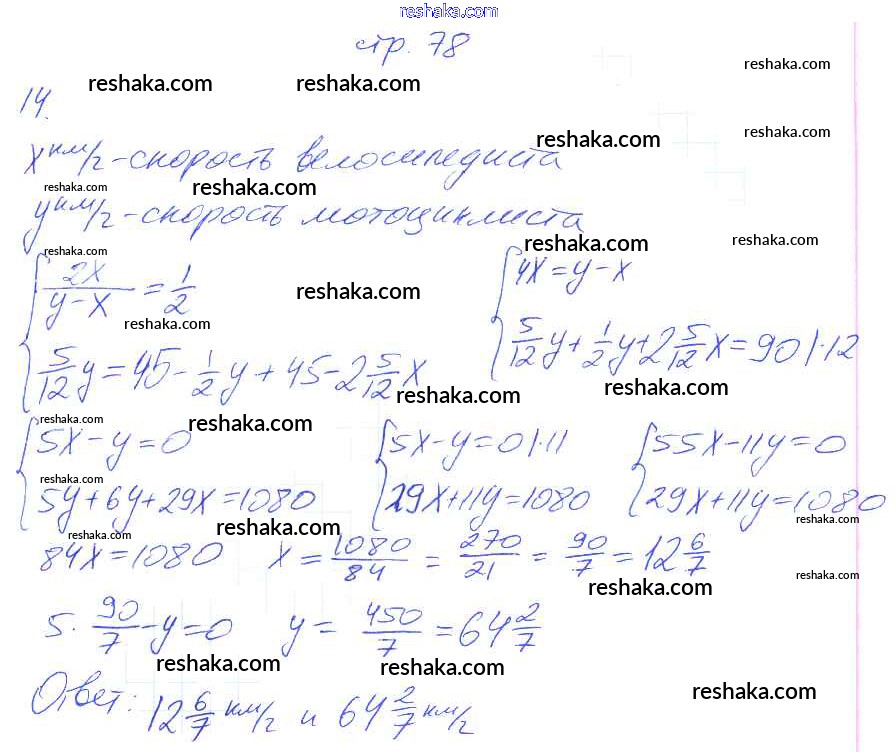 reshaka.com
стр. 78
reshaka.com reshaka.com reshaka.com
14.
reshaka.com reshaka.com
x км/г - скорость велосипедиста
reshaka.com reshaka.com
y км/г - скорость мотоциклиста
reshaka.com reshaka.com reshaka.com
{ 2x/(y-x) = 1/2 { 4x = y - x
reshaka.com reshaka.com
{ 5/12 y = 45 - 1/2 y + 45 - 2 5/12 x { 5/12 y + 1/2 y + 2 5/12 x = 90 | · 12
reshaka.com reshaka.com
reshaka.com reshaka.com reshaka.com
{ 5x - y = 0 { 5x - y = 0 | · 11 { 55x - 11y = 0
reshaka.com
{ 5y + 6y + 29x = 1080 { 29x + 11y = 1080 { 29x + 11y = 1080
reshaka.com reshaka.com reshaka.com
84x = 1080 x = 1080/84 = 270/21 = 90/7 = 12 6/7
reshaka.com reshaka.com
5 · 90/7 - y = 0 y = 450/7 = 64 2/7
reshaka.com reshaka.com
reshaka.com
Ответ: 12 6/7 км/г и 64 2/7 км/г